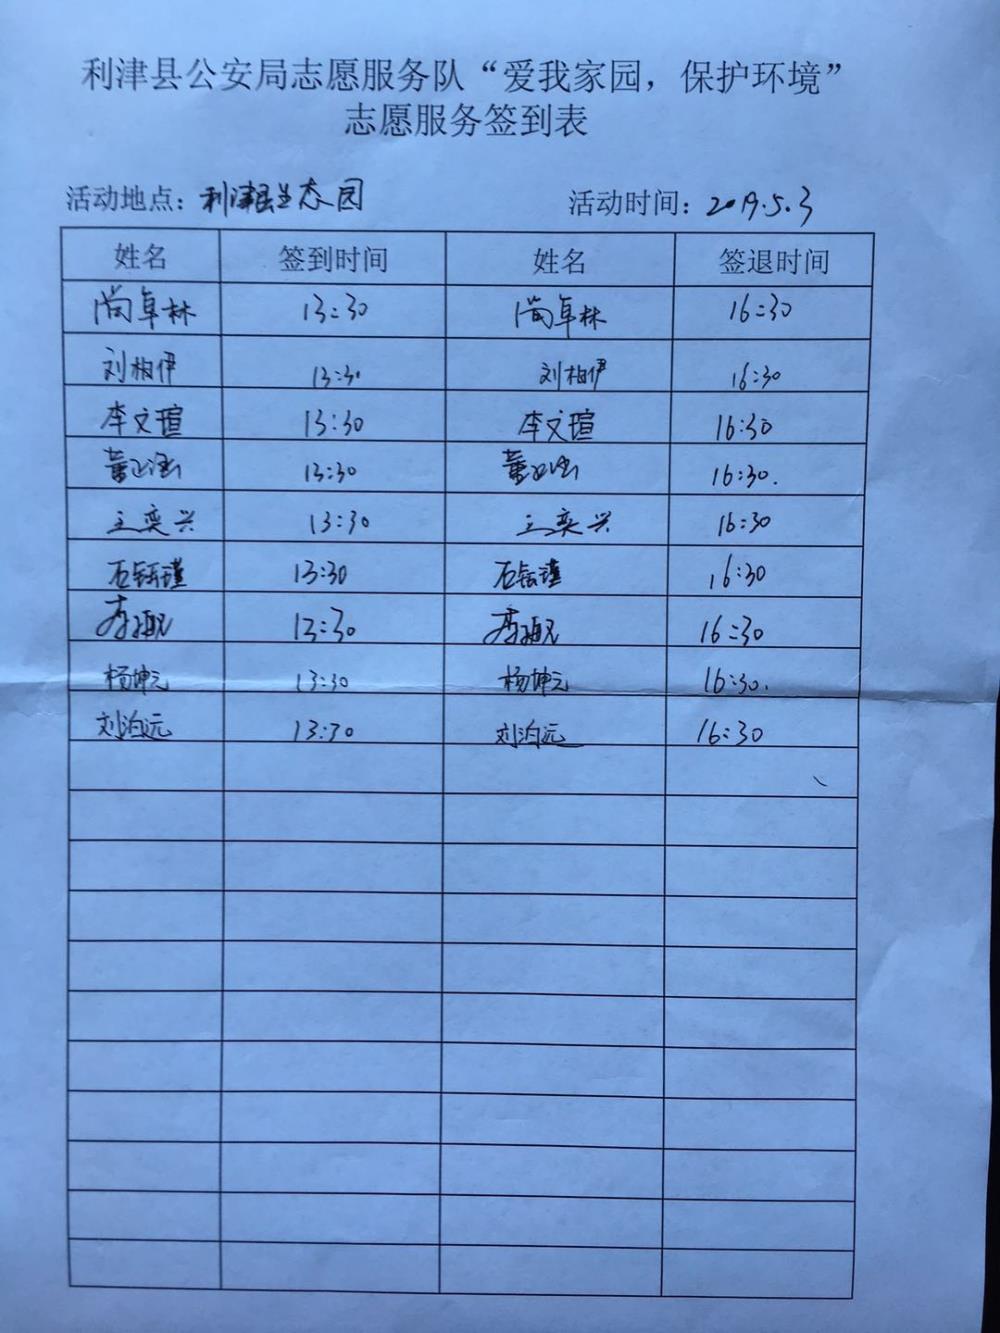 利津县公安局志愿服务队“爱我家园，保护环境”
志愿服务签到表
活动地点：利津县生态园 活动时间：2019.5.3
姓名 签到时间 姓名 签退时间
尚卓林 13:30 尚卓林 16:30
刘柏伊 13:30 刘柏伊 16:30
李文瑄 13:30 李文瑄 16:30
董正涵 13:30 董正涵 16:30.
王奕兴 13:30 王奕兴 16:30
石钰瑾 13:30 石钰瑾 16:30
13:30 16:30
杨坤元 13:30 杨坤元 16:30.
刘泊远 13:30 刘泊远 16:30